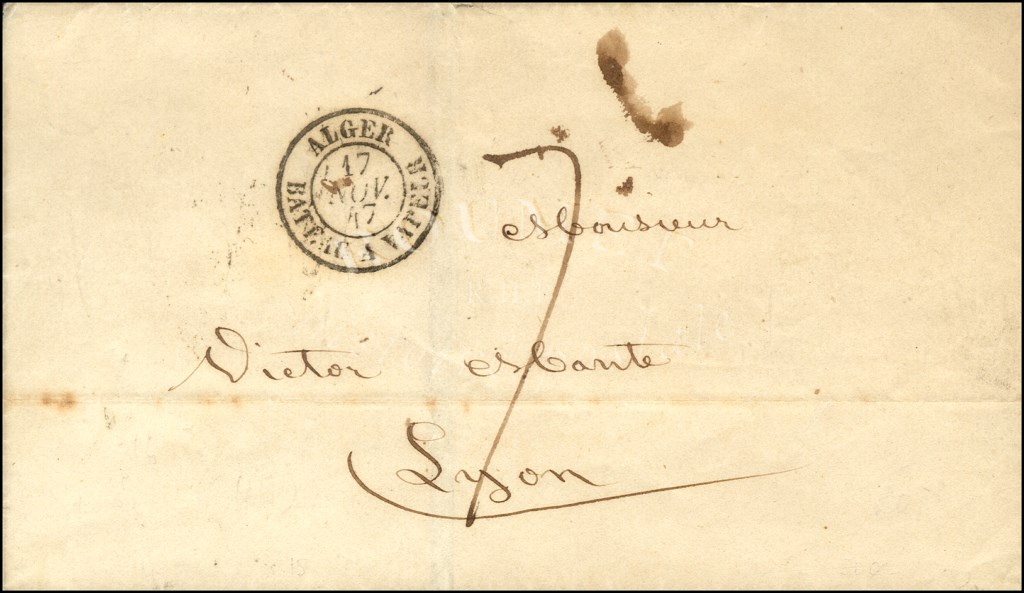 ALGER
17
NOV.
47
BATEAU A VAPEUR
7
Monsieur
Victor Mante
Lyon